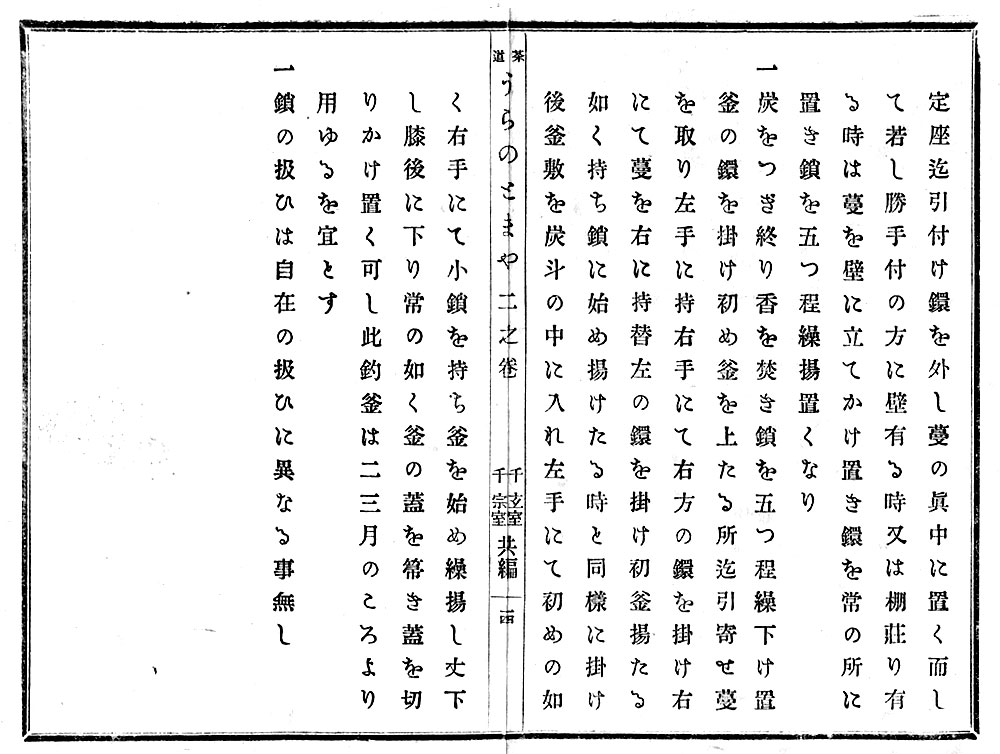 定座迄引付け鐶を外し蔓の眞中に置く而し
て若し勝手付の方に壁有る時又は棚莊り有
る時は蔓を壁に立てかけ置き鐶を常の所に
置き鎖を五つ程繰揚置くなり
一炭をつぎ終り香を焚き鎖を五つ程繰下け置
釜の鐶を掛け初め釜を上たる所迄引寄せ蔓
を取り左手に持右手にて右方の鐶を掛け右
にて蔓を右に持替左の鐶を掛け初釜揚たる
如く持ち鎖に始め揚けたる時と同樣に掛け
後釜敷を炭斗の中に入れ左手にて初めの如
茶道
うらのとまや二之卷
千玄室
千宗室
共編
一四
く右手にて小鎖を持ち釜を始め繰揚し丈下
し膝後に下り常の如く釜の蓋を箒き蓋を切
りかけ置く可し此釣釜は二三月のころより
用ゆるを宜とす
一鎖の扱ひは自在の扱ひに異なる事無し